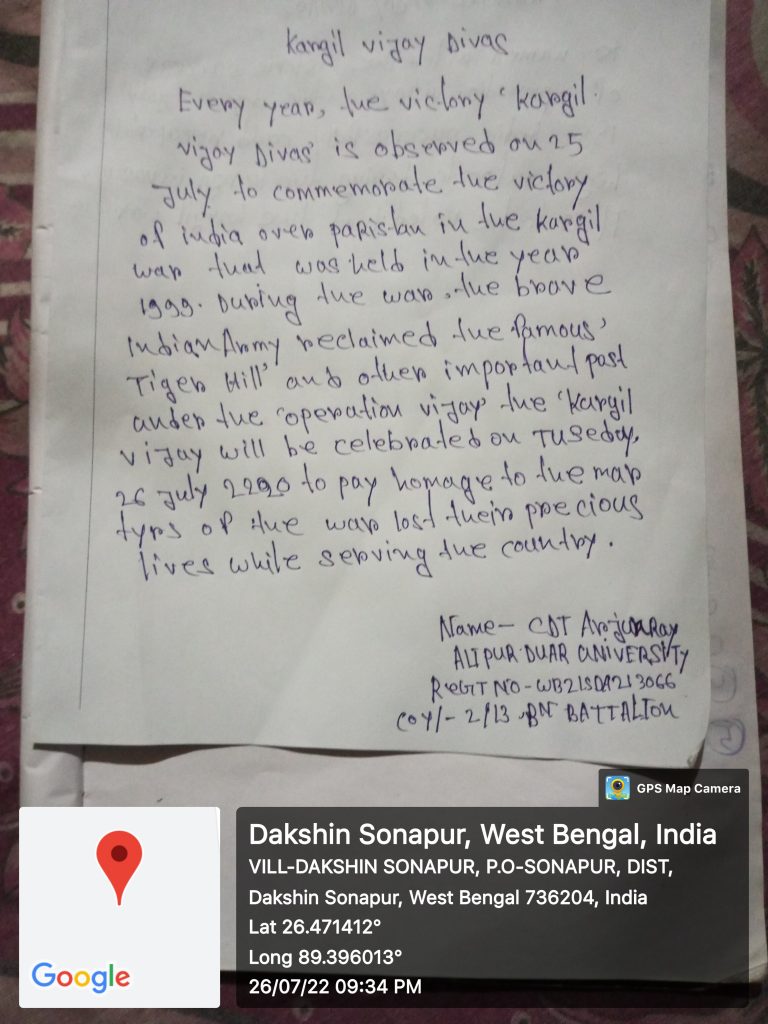 Kargil vijay Divas
Every year, the victory 'Kargil
vijay Divas' is observed on 25
July to commemorate the victory
of india over pakistan in the kargil
war that was held in the year
1999. During the war, the brave
Indian Army reclaimed the famous'
Tiger Hill' and other important past
under the 'operation vijay' the 'Kargil
vijay will be celebrated on Tuseday,
26 July 2290 to pay homage to the mar
tyrs of the war lost their precious
lives while serving the country.
Name- CDT Arjun Ray
ALIPUR DUAR UNIVERSITY
REGT NO-WB21SDA213066
COY/- 2/13 BN BATTALION
GPS Map Camera
Dakshin Sonapur, West Bengal, India
VILL-DAKSHIN SONAPUR, P.O-SONAPUR, DIST,
Dakshin Sonapur, West Bengal 736204, India
Lat 26.471412°
Long 89.396013°
26/07/22 09:34 PM
Google